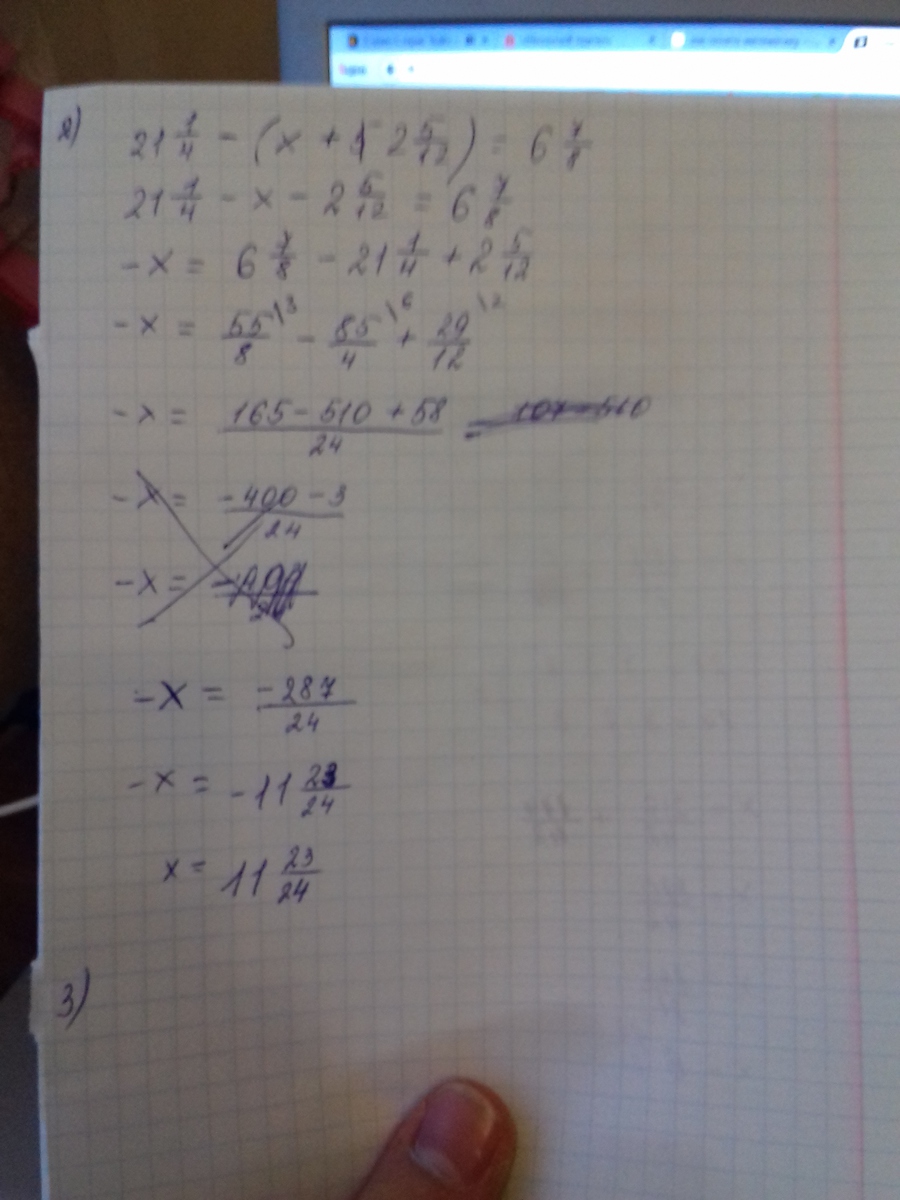 2) 21 1/4 - (x + 2 5/12) = 6 7/8
21 1/4 - x - 2 5/12 = 6 7/8
-x = 6 7/8 - 21 1/4 + 2 5/12
-x = 55\3/8 - 85\6/4 + 29\2/12
-x = 165-510+58/24 =
-x = -400-3/24
-x =
-x = -287/24
-x = -11 23/24
x = 11 23/24
3)